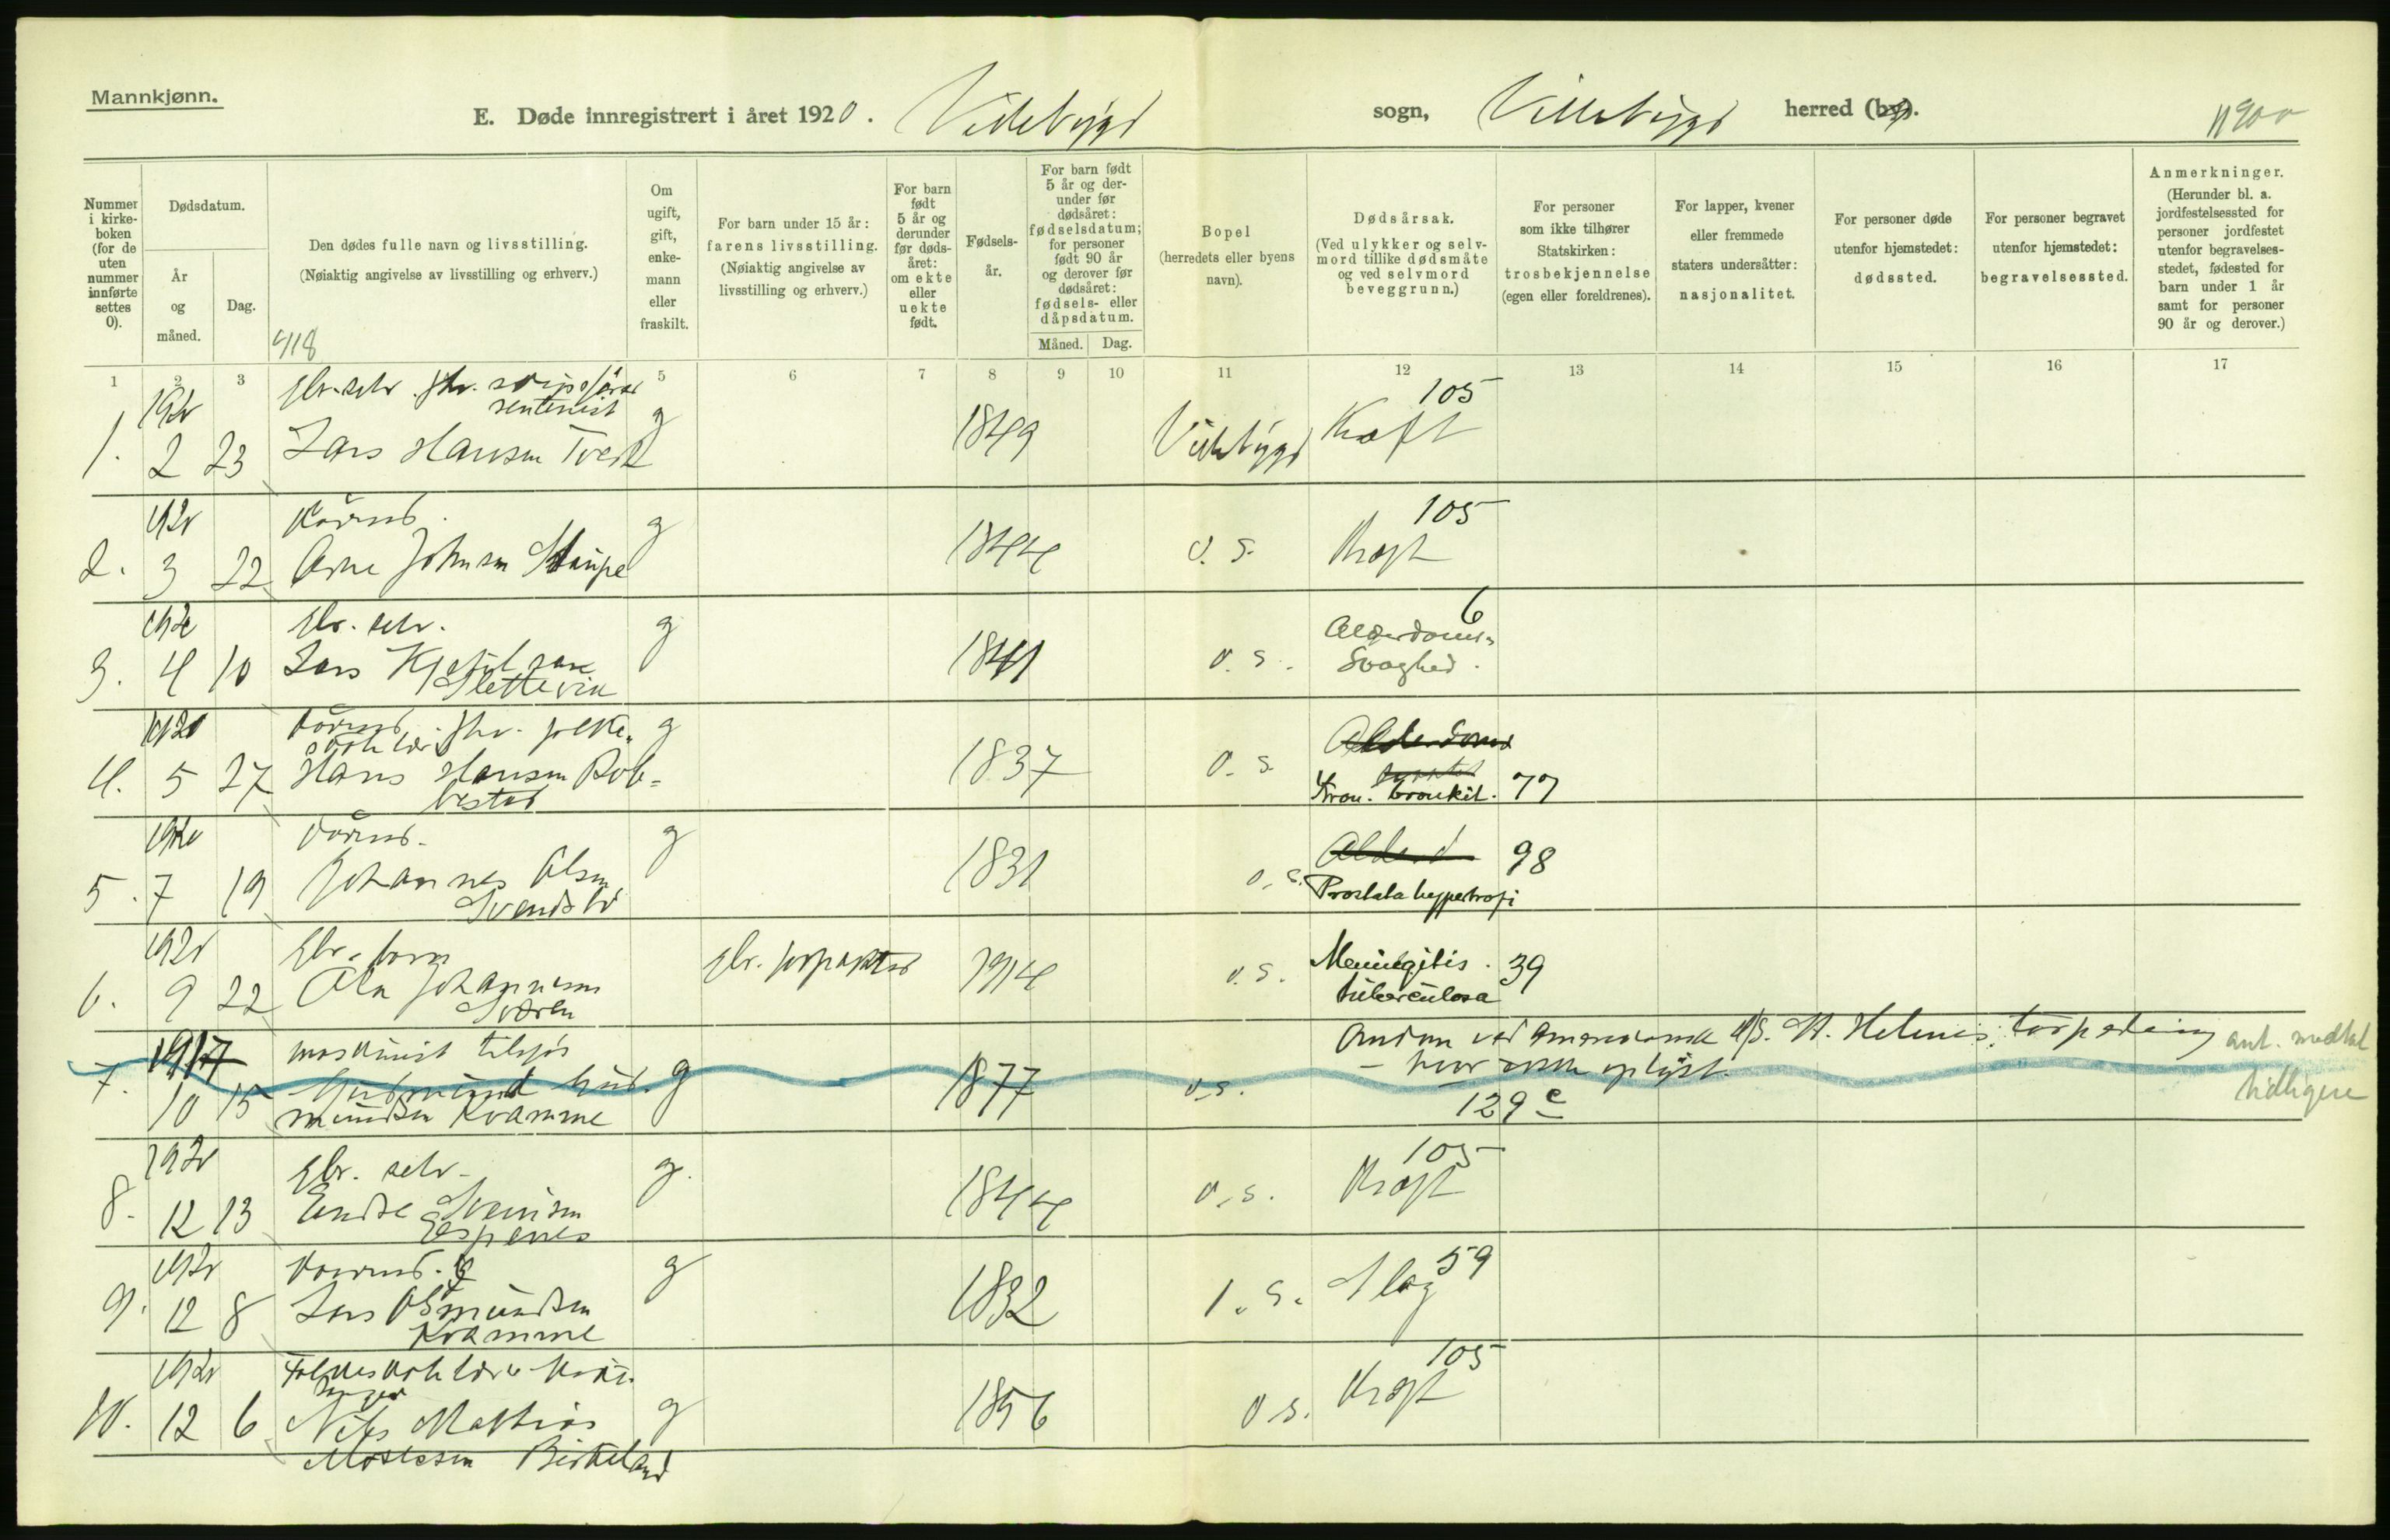 Mannkjønn.
E. Døde innregistrert i året 1920. Vikebygd sogn, Vikebygd herred (by).
Nummer i kirkeboken (for de uten nummer innførte settes 0).
Dødsdatum.
År og måned.
Dag.
Den dødes fulle navn og livsstilling.
(Nøiaktig angivelse av livsstilling og erhverv.)
Om ugift, gift, enkemann eller fraskilt.
For barn under 15 år: farens livsstilling.
(Nøiaktig angivelse av livsstilling og erhverv.)
For barn født 5 år og derunder før dødsåret: om ekte eller uekte født.
Fødselsår.
For barn født 5 år og derunder før dødsåret: fødselsdatum; for personer født 90 år og derover før dødsåret: fødsels- eller dåpsdatum.
Måned. Dag.
Bopel
(herredets eller byens navn).
Dødsårsak.
(Ved ulykker og selvmord tillike dødsmåte og ved selvmord beveggrunn.)
For personer som ikke tilhører Statskirken: trosbekjennelse (egen eller foreldrenes).
For lapper, kvener eller fremmede staters undersåtter: nasjonalitet.
For personer døde utenfor hjemstedet: dødssted.
For personer begravet utenfor hjemstedet: begravelsessted.
Anmerkninger.
(Herunder bl. a. jordfestelsessted for personer jordfestet utenfor begravelsesstedet, fødested for barn under 1 år samt for personer 90 år og derover.)
418
1 2 3 5 6 7 8 9 10 11 12 13 14 15 16 17
1920 gbr. selv. g 105
1. 2 23 Lars Hansen Tveit 1849 Vikebygd Kræft
1920 Kårmd. g 105
2. 3 22 Arne Johnsen Staupe 1844 o. s. Kræft
1920 gbr. selv. g 6
3. 4 10 Lars 1841 o. s. Alderdoms-
Slettevik Svaghed.
1920 Kårmd. g Alderdoms
4. 5 27 Hans Hansen 1837 o. s.
Kron. bronkit. 77
1920 Kårmd. g Alderd 98
5. 7 19 Johannes Olsen 1831 o. s. Prostatahypertrofi
1920 gbr. barn gbr. forpakter 1914 Meningitis 39
6. 9 22 Ola Johannesen o. s. tuberculosa
1917 maskinist tilsjøs g
7. 10 15 Gudmund Gud- 1877 o. s.
mundsen Kvamme 129 c
St. Helens torpedering ant. medtat
tidligere
1920 gbr. selv. g. 105
8. 12 13 Endre Sveinsen 1844 o. s. Kræft
Espenes
1920 Kårmd. g 59
9. 12 8 Lars Osmundsen 1832 o. s. Slag
Kvamme
1920 105
10. 12 6 Nils Mathias g 1856 o. s. Kræft
Birkeland